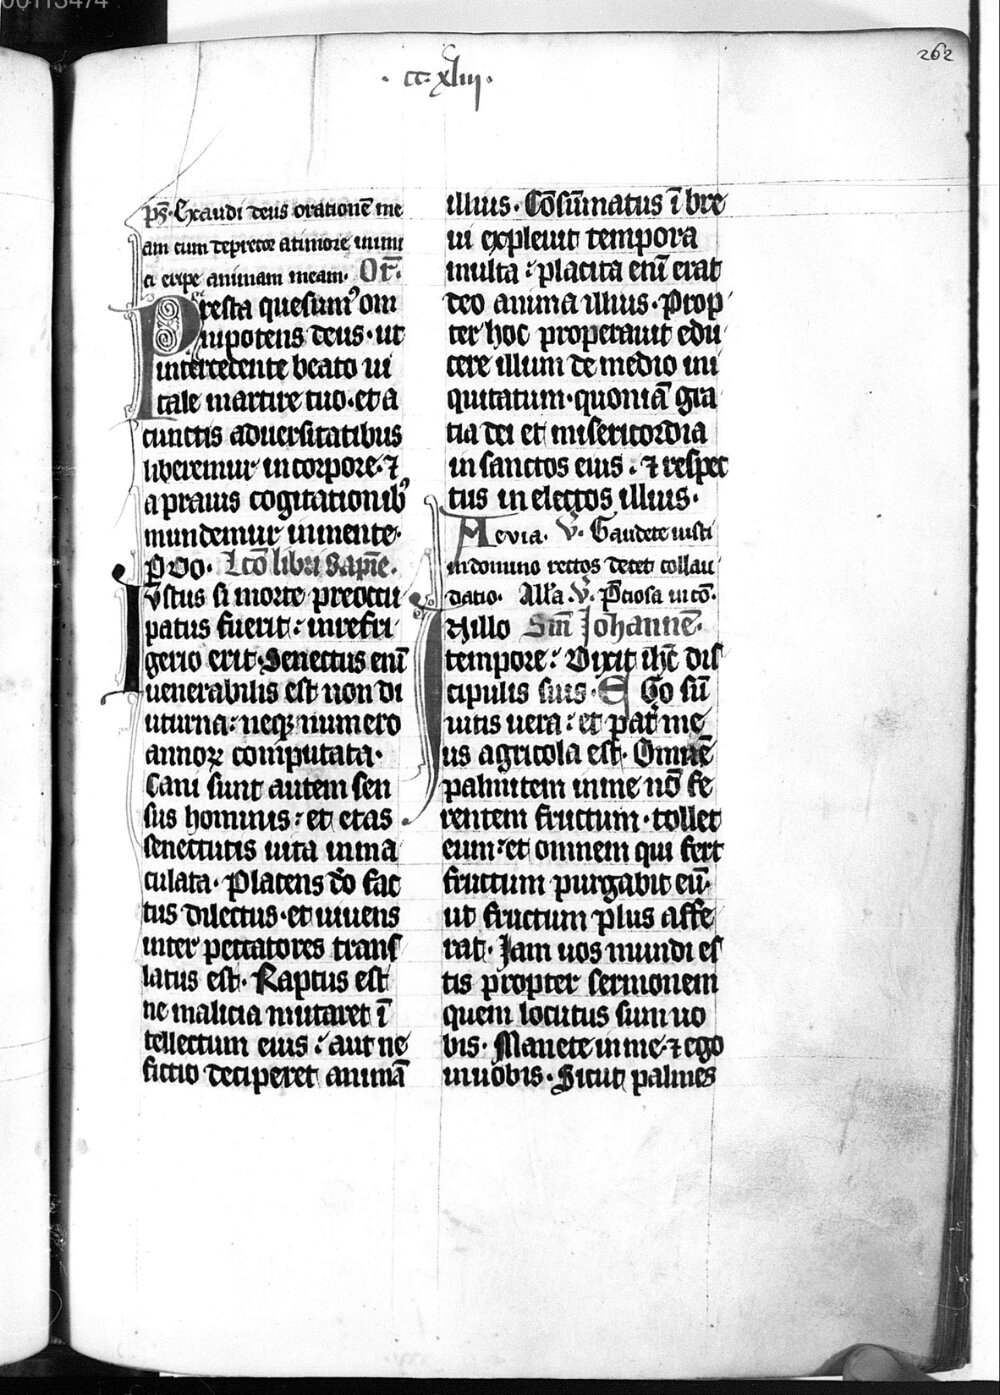 262
·cc·xliii·
ps̄·Exaudi deus orationē me
am cum deprecor a timore inimi
ci eripe animam meam· Or̄·
Presta quesumꝰ om
nipotens deus· ut
intercedente beato ui
tale martire tuo·et a
cunctis aduersitatibus
liberemur in corpore·⁊
a prauis cogitationibꝰ
mundemur in mente·
ꝑ do· Lcō libri Sapīe·
Iustus si morte preoccu
patus fuerit: in refri
gerio erit·Senectus enī
uenerabilis est non di
uturna: neqꝫ numero
annoꝝ computata·
Cani sunt autem sen
sus hominis: et etas
senectutis uita inma
culata· Placens dō fac
tus dilectus·et uiuens
inter peccatores trans
latus est· Raptus est
ne malicia mutaret ī
tellectum eius: aut ne
fictio deciperet animā
illius· Cōsūmatus ī bre
ui expleuit tempora
multa: placita enī erat
deo anima illius· Prop
ter hoc properauit edu
cere illum de medio ini
quitatum·quoniā gra
tia dei et misericordia
in sanctos eius: ⁊ respec
tus in electos illius·
Aeuia· ℣· Gaudete iusti
in domino rectos decet collau
datio· All'a ℣· P̄ciosa in cō·
In illo Sm̄ Johannē·
tempore: Dixit ih̄c dis
cipulis suis· Ego sū
uitis uera: et pat̄ me
us agricola est· Omnē
palmitem in me nō fe
rentem fructum· tollet
eum: et omnem qui fert
fructum purgabit eū·
ut fructum plus affe
rat· Jam uos mundi es
tis propter sermonem
quem locutus sum uo
bis· Manete in me·⁊ ego
in uobis· Sicut palmes